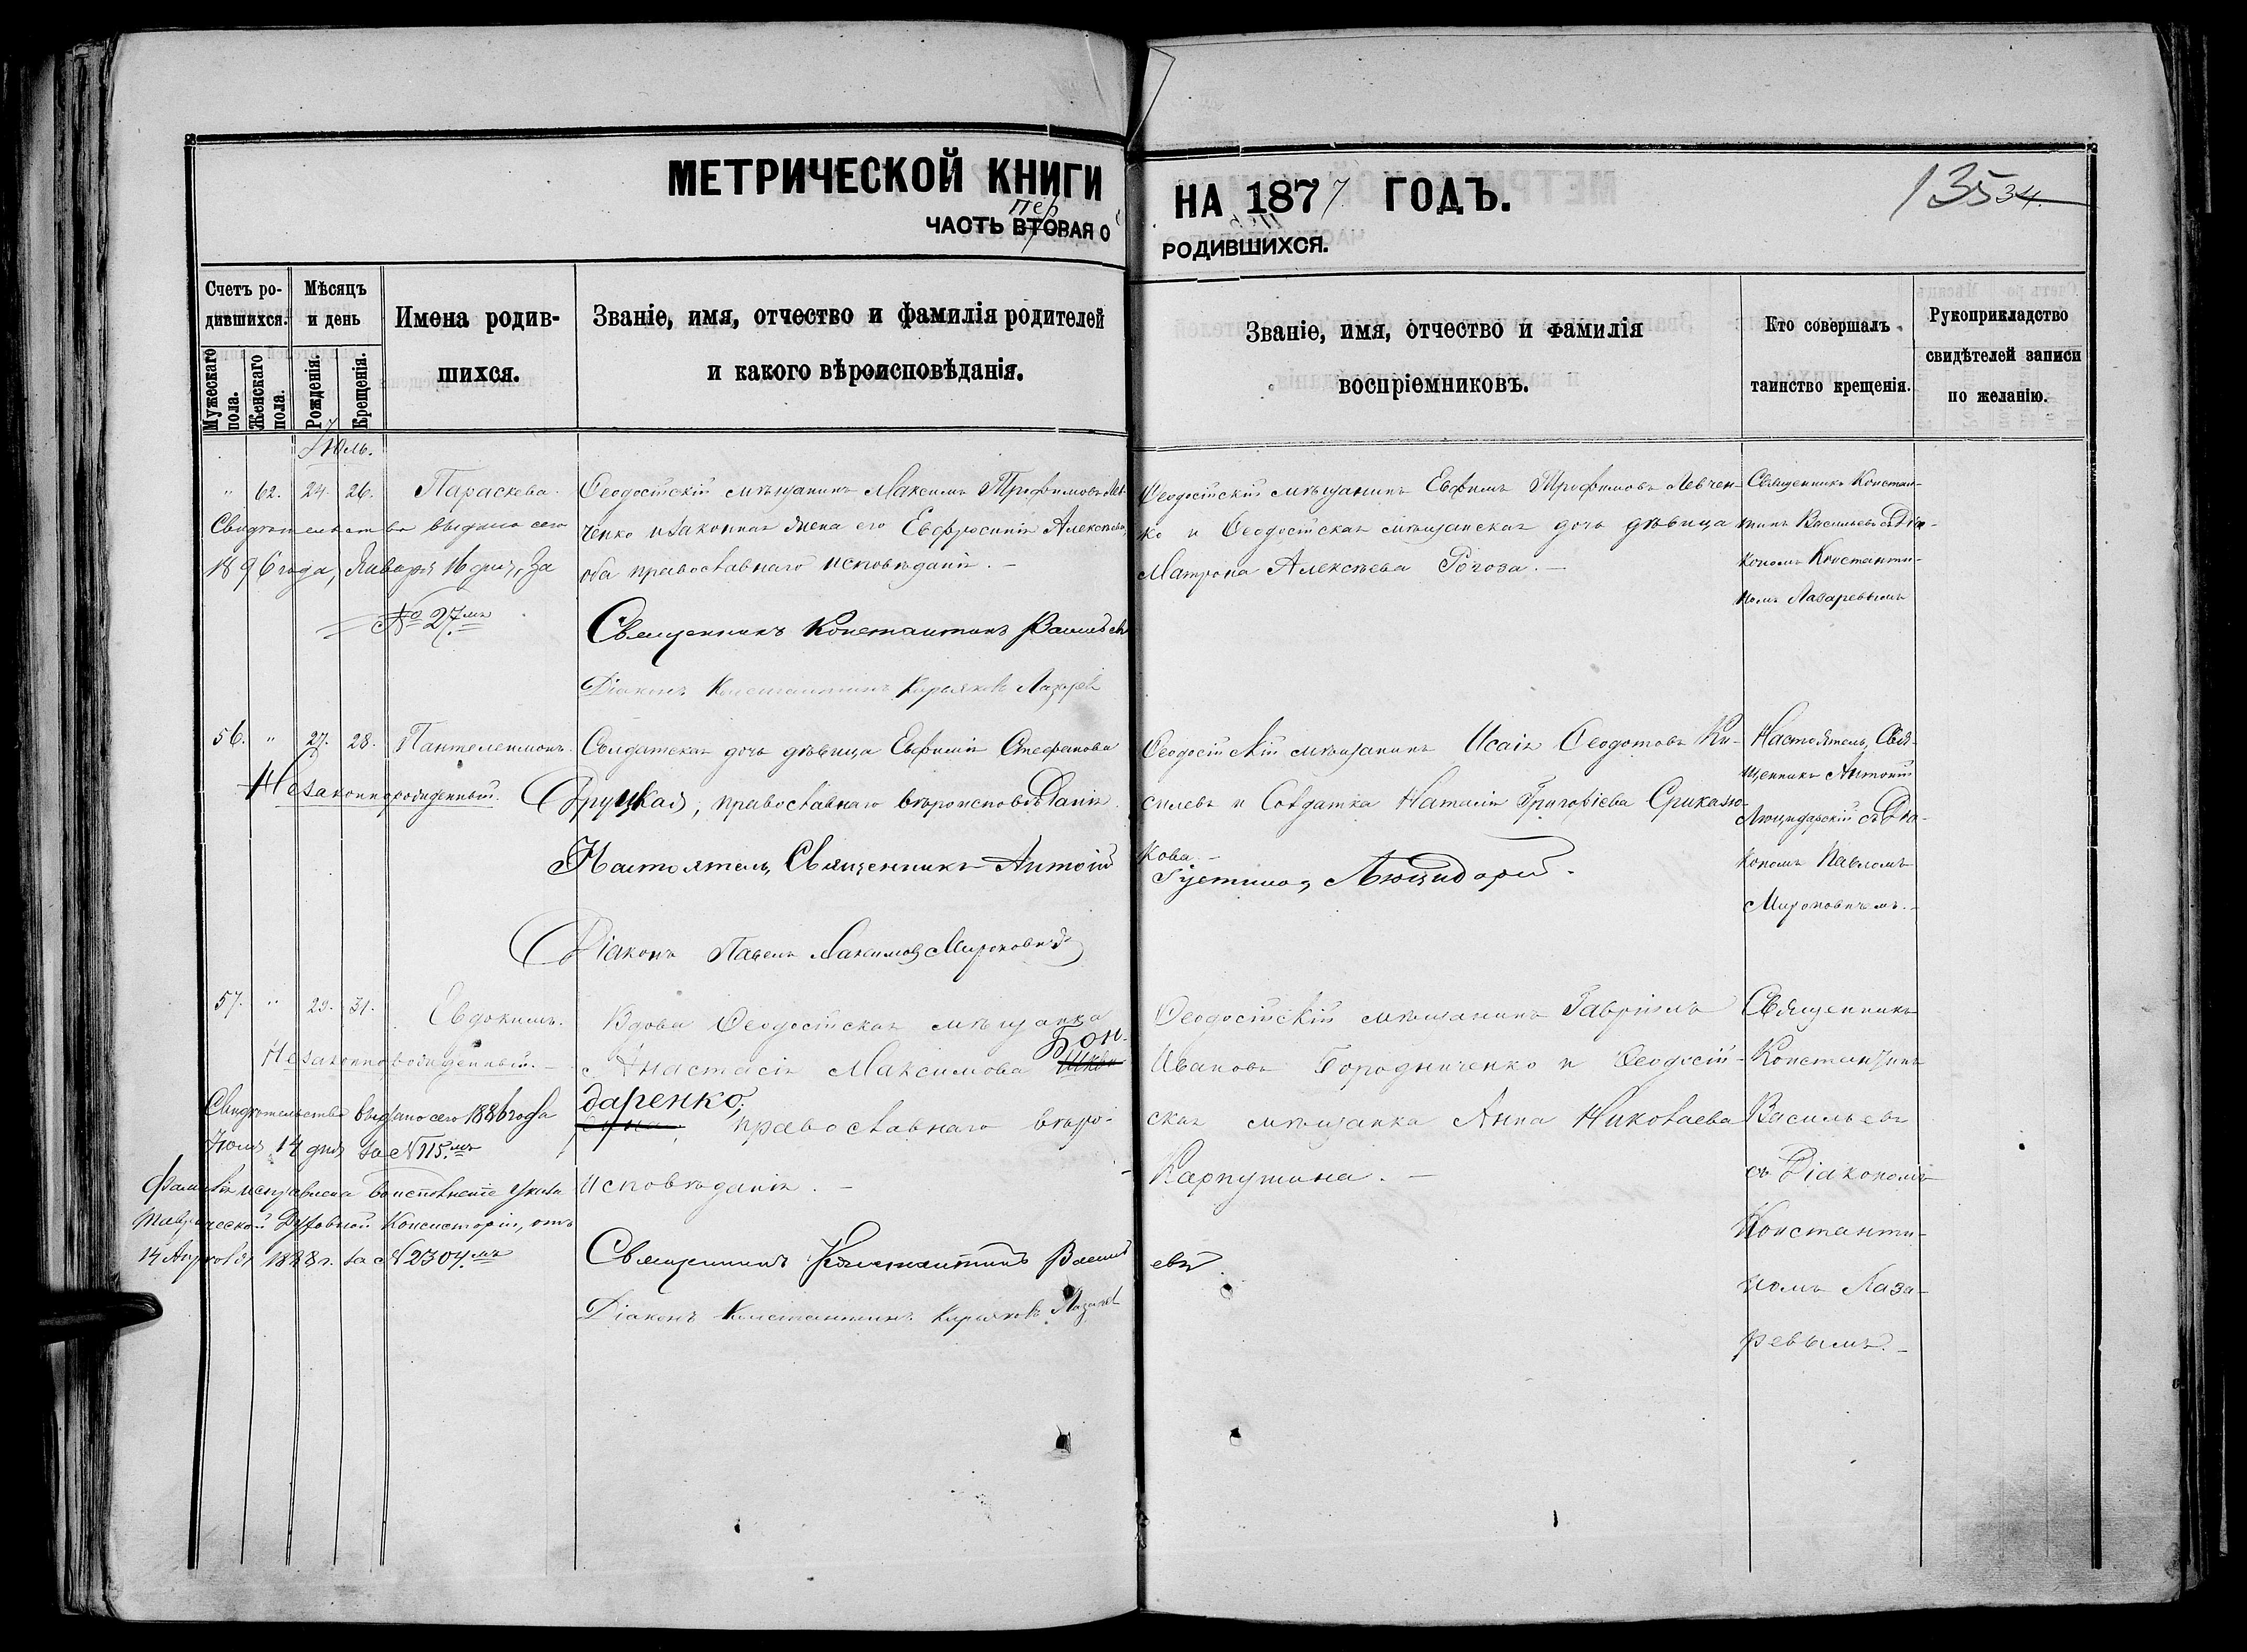 МЕТРИЧЕСКОЙ КНИГИ
НА 1877 ГОДЪ.
135 34.
пер
ЧАСТЬ ВТОРАЯ О
РОДИВШИХСЯ.
Счетъ ро-
дившихся.
Мужескаго
пола.
Женскаго
пола.
Мѣсяцъ
и день
Рожденія.
Крещенія.
Имена родив-
шихся.
Званіе, имя, отчество и фамилія родителей
и какого вѣроисповѣданія.
Званіе, имя, отчество и фамилія
воспріемниковъ.
Кто совершалъ
таинство крещенія.
Рукоприкладство
свидѣтелей записи
по желанію.
Июль.
" 62. 24. 26. Параскева.
Свидѣтельство выдано сего
1896 года, Января 16 дня, за
№ 27мъ
Ѳеодосійскій мѣщанинъ Максимъ Трофимовъ Лев-
ченко и законная жена его Евфросинія Алексѣева,
оба православнаго исповѣданія. —
Священникъ Константинъ Васильевъ
Діаконъ Константинъ Кирьяковъ Лазаревъ
Ѳеодосійскій мѣщанинъ Евфимъ Трофимовъ Левчен-
ко и Ѳеодосійская мѣщанская дочь дѣвица
Матрона Алексѣева Рогоза. —
Священникъ Констан-
тинъ Васильевъ съ Діа-
кономъ Константи-
номъ Лазаревымъ
56. " 27. 28. Пантелеимонъ.
Незаконнорожденный.
Солдатская дочь дѣвица Евфимія Стефанова
Друцкая, православнаго вѣроисповѣданія.
Настоятель, Священникъ Антоній
Діаконъ Павелъ Максимовъ Мироновичъ
Ѳеодосійскій мѣщанинъ Исаія Ѳеодотовъ Ки-
силевъ и Солдатка Наталія Григорьева
кова. —
Настоятель, Свя-
щенникъ Антоній
съ Діа-
кономъ Павломъ
Мироновичемъ. —
57. " 29. 31. Евдокимъ.
Незаконнорожденный. —
Свидѣтельство выдано сего 1886 года
Іюля 14 дня за № 115.мъ
Фамилія исправлена вслѣдствіе Указа
Таврической Духовной Консисторіи, отъ
14 Апрѣля 1888 г. за № 2304.мъ
Вдова Ѳеодосійская мѣщанка
Анастасія Максимова Бон-
даренко, православнаго вѣро-
исповѣданія. —
Священникъ Константинъ Васильевъ
Діаконъ Константинъ Кирьяковъ Лазаревъ
Ѳеодосійскій мѣщанинъ Гавріилъ
Ивановъ Городниченко и Ѳеодосій-
ская мѣщанка Анна Николаева
Карпушина. —
Священникъ
Константинъ
Васильевъ
съ Діакономъ
Константи-
номъ Лаза-
ревымъ. —